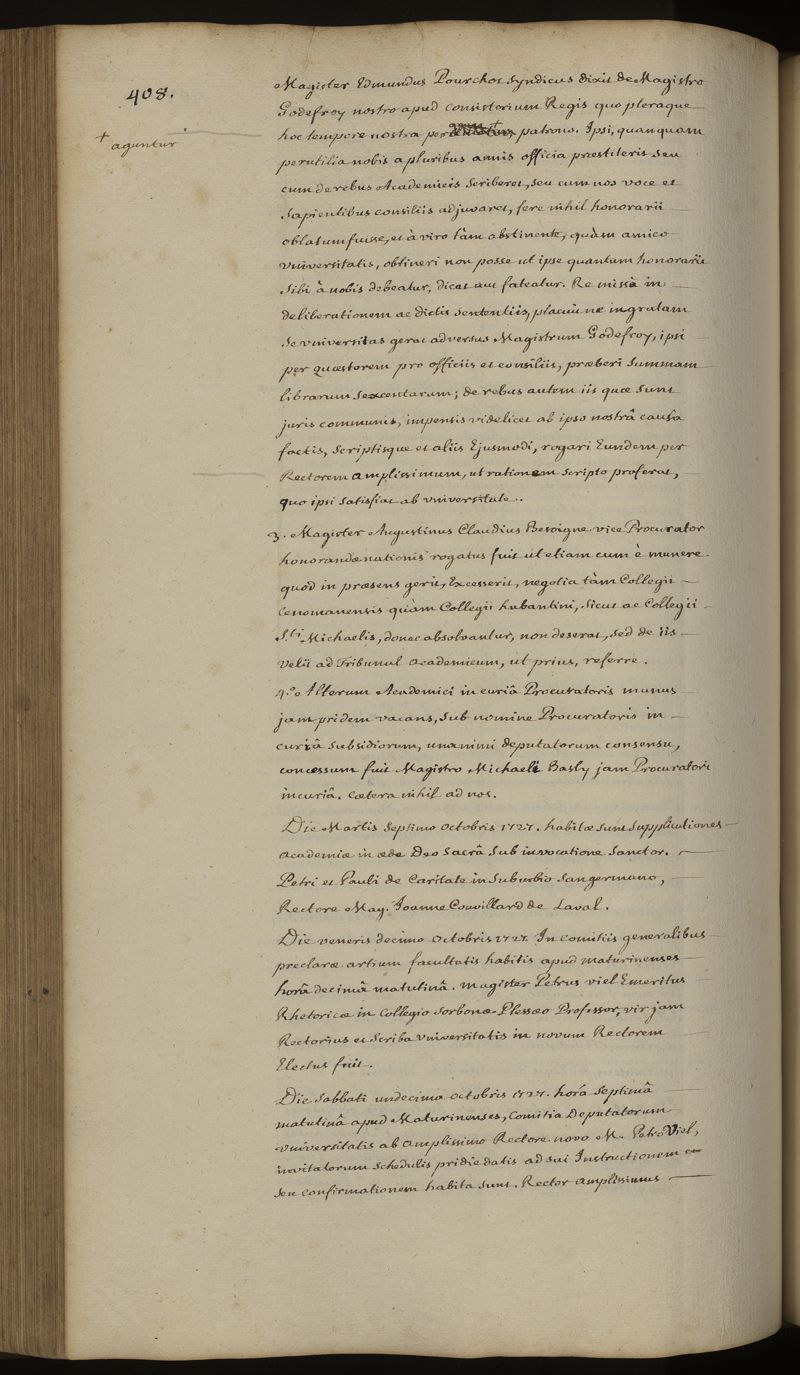 408.
+ aguntur
Magister Edmundus Pourchot Syndicus dixit de Magistro
Godefroy nostro apud Consistorium Regis quo pleraque
hoc tempore nostra per + patrono. Ipsi, quanquam
perutilia nobis a pluribus annis officia præstiterit seu
cum de rebus Academicis scriberet, seu cum nos voce et
sapientibus consiliis adjuvaret, fere nihil honorarii
oblatum fuisse, et à viro tàm abstinente, quàm amico
universitatis, obtineri non posse ut ipse quantum honorarii
sibi à nobis debeatur, dicat aut fateatur. Re missâ in
deliberationem ac dictis sententiis, placuit ne ingratam
se universitas gerat adversus Magistrum Godefroy, ipsi
per quæstorem pro officiis et consiliis, præberi summam
librarum sexcentarum; de rebus autem iis quæ sunt
juris communis, impensis videlicet ab ipso nostrâ causâ
factis, scriptisque et aliis Ejusmodi, rogari Eundem per
Rectorem amplissimum, ut rationem scripto proferat,
quo ipsi satisfiat ab universitate..
3. Magister Augustinus Claudius Besoigne vice Procurator
honorandæ nationis rogatus fuit ut etiam cum è munere
quod in præsens gerit, Excesserit, negotia tàm Collegii
Cenomanensis quàm Collegii hubantini, sicut ac Collegii
S.ti Michaelis, donec absolvantur, non deserat, sed de iis
velit ad Tribunal academicum, ut prius, referre.
4.o Alterum Academici in curiâ Procuratoris munus
jam pridem vacans, sub nomine Procuratoris in
curiâ subsidiorum, unanimi deputatorum consensu,
concessum fuit Magistro Michaeli Basly jam Procuratori
in curiâ. Cætera nihil ad nos.
Die Martis septimo octobris 1727. habitæ sunt supplicationes
academiæ in æde Deo Sacrâ sub invocatione Sanctor.
Petri et Pauli de Caritate in Suburbio Sangermano,
Rectore Mag. Joanne Couvillard de Laval.
Die veneris decimo octobris 1727. In Comitiis generalibus
preclaræ artium facultatis habitis apud maturinenses
horâ decimâ matutinâ. Magister Petrus viel Emeritus
Rhetoricæ in Collegio Sorbonæ-Plessæo Professor, vir jam
Rectorius et Scriba universitatis in novum Rectorem
Electus fuit.
Die Sabbati undecimo octobris 1727. horâ septimâ
matutinâ apud Maturinenses, Comitia Deputatorum
universitatis ab amplissimo Rectore novo M. Petro Viel,
invitatorum schedulis pridie datis ad sui Instructionem
seu confirmationem habita sunt. Rector amplissimus